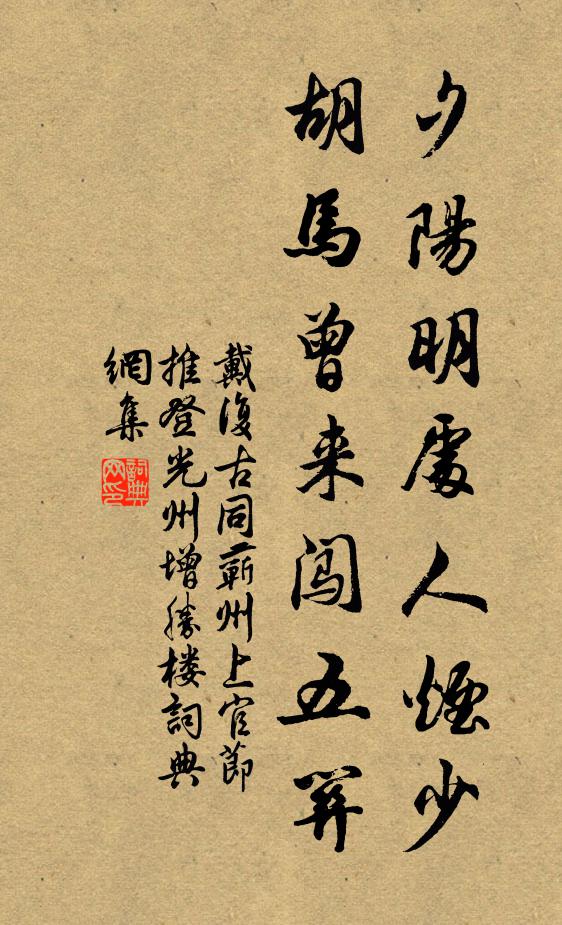 夕陽明處人煙少
胡馬曾来闖五關
戴復古同蘄州上官節
推登光州增勝楼詞典
網集
詞典网印